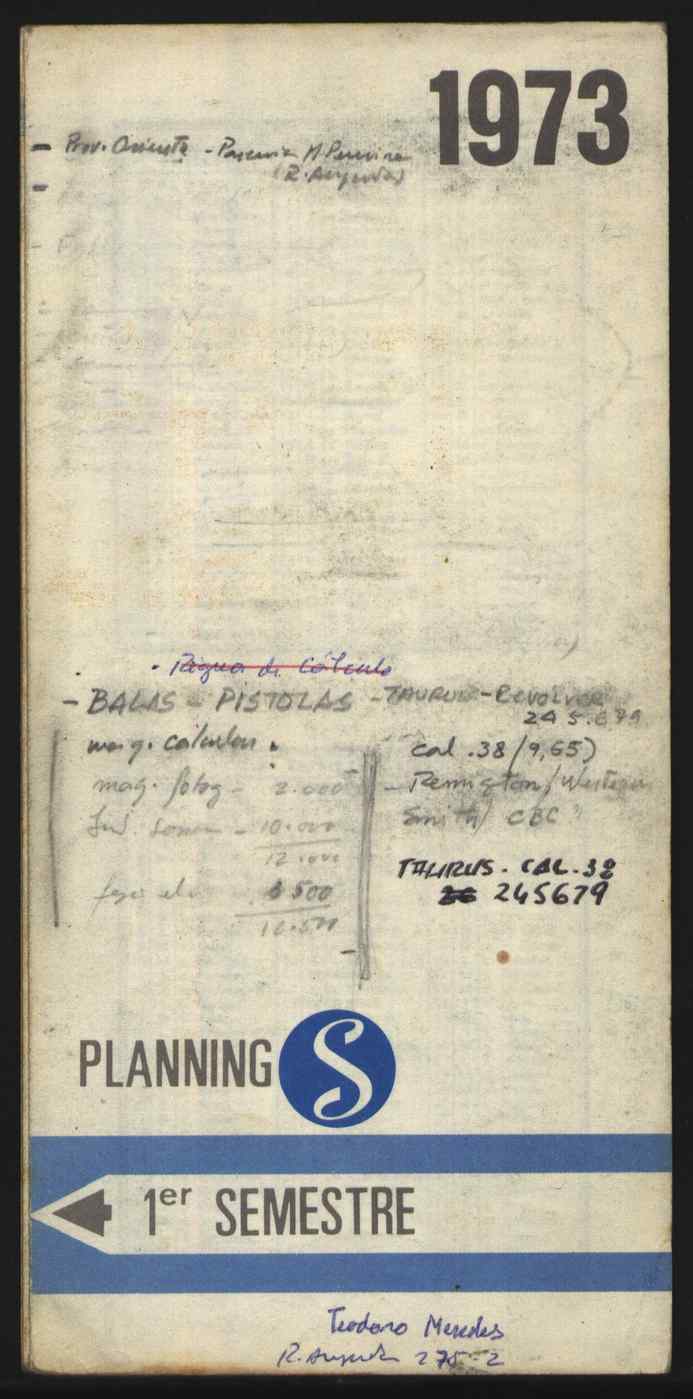 1973
- Prov. Oriente - M Pereira
(R. Augusta)
-
. Régua de Cálculo
- BALAS - PISTOLAS - TAURUS - Revolver
245.679
maq. calcular .
cal .38 (9,65)
maq. fotog - 2.000
- Remington / Western
10.000
Smith CBC
12.000
TAURUS . CAL .38
500
245679
12.500
PLANNING S
1er SEMESTRE
Teodoro Mendes
R. Augusta 275-2